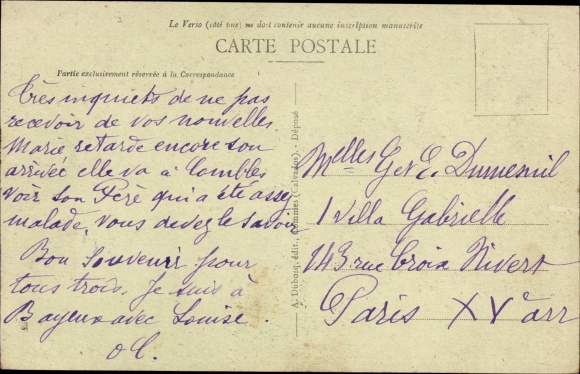 Le Verso (côté vue) ne doit contenir aucune inscription manuscrite
CARTE POSTALE
Partie exclusivement réservée à la Correspondance
Très inquiets de ne pas
recevoir de vos nouvelles.
Marie retarde encore son
arrivée elle va à Combles
voir son Père qui a été assez
malade, vous devez le savoir
Bon Souvenir pour
tous trois. Je suis à
Bayeux avec Louise.
A. Dubosq, édit., (Calvados). - Déposé
Melles G et E. Dumesnil
1 Villa Gabrielle
143 rue Croix Nivert
Paris XVe arr